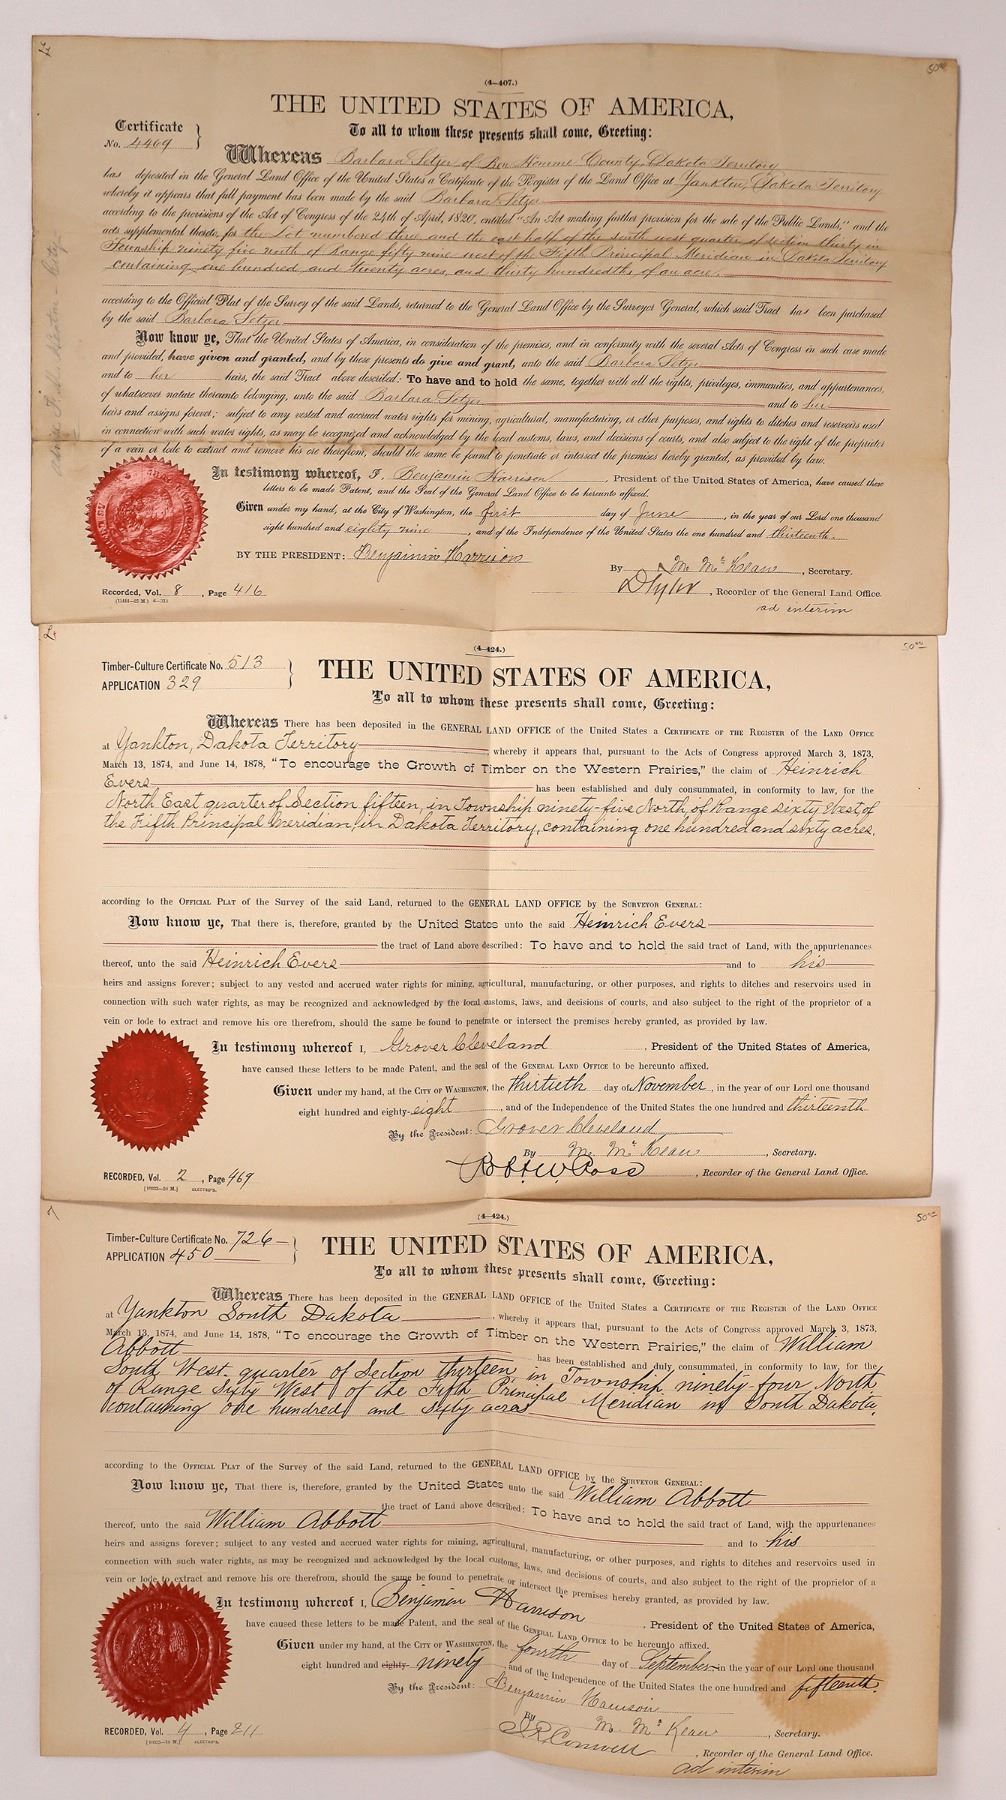 (4—407.)
50 00
THE UNITED STATES OF AMERICA,
Certificate
No. 4469
To all to whom these presents shall come, Greeting:
Whereas Barbara Setzer of Bon Homme County Dakota Territory
has deposited in the General Land Office of the United States a Certificate of the Register of the Land Office at Yankton, Dakota Territory
whereby it appears that full payment has been made by the said Barbara Setzer
according to the provisions of the Act of Congress of the 24th of April, 1820, entitled "An Act making further provision for the sale of the Public Lands," and the
acts supplemental thereto, for the Lot numbered three and the east half of the south west quarter of section thirty in
Township ninety five north of Range fifty nine west of the Fifth Principal Meridian in Dakota Territory
containing one hundred and twenty acres, and thirty hundredths of an acre
according to the Official Plat of the Survey of the said Lands, returned to the General Land Office by the Surveyor General, which said Tract has been purchased
by the said Barbara Setzer
Now know ye, That the United States of America, in consideration of the premises, and in conformity with the several Acts of Congress in such case made
and provided, have given and granted, and by these presents do give and grant, unto the said Barbara Setzer
and to her heirs, the said Tract above described: To have and to hold the same, together with all the rights, privileges, immunities, and appurtenances,
of whatsoever nature thereunto belonging, unto the said Barbara Setzer and to her
heirs and assigns forever; subject to any vested and accrued water rights for mining, agricultural, manufacturing, or other purposes, and rights to ditches and reservoirs used
in connection with such water rights, as may be recognized and acknowledged by the local customs, laws, and decisions of courts, and also subject to the right of the proprietor
of a vein or lode to extract and remove his ore therefrom, should the same be found to penetrate or intersect the premises hereby granted, as provided by law.
In testimony whereof, I, Benjamin Harrison, President of the United States of America, have caused these
letters to be made Patent, and the Seal of the General Land Office to be hereunto affixed.
Given under my hand, at the City of Washington, the first day of June, in the year of our Lord one thousand
eight hundred and eighty nine, and of the Independence of the United States the one hundred and thirteenth.
BY THE PRESIDENT: Benjamin Harrison
By M. McKean, Secretary.
Recorded, Vol. 8, Page 416
D Tyler, Recorder of the General Land Office.
ad interim
(4—424.)
50 00
Timber-Culture Certificate No. 513
APPLICATION 329
THE UNITED STATES OF AMERICA,
To all to whom these presents shall come, Greeting:
Whereas There has been deposited in the GENERAL LAND OFFICE of the United States a CERTIFICATE OF THE REGISTER OF THE LAND OFFICE
at Yankton, Dakota Territory, whereby it appears that, pursuant to the Acts of Congress approved March 3, 1873,
March 13, 1874, and June 14, 1878, "To encourage the Growth of Timber on the Western Prairies," the claim of Heinrich
Evers has been established and duly consummated, in conformity to law, for the
North East quarter of Section fifteen, in Township ninety-five North, of Range sixty West, of
the Fifth Principal Meridian, in Dakota Territory, containing one hundred and sixty acres.
according to the OFFICIAL PLAT of the Survey of the said Land, returned to the GENERAL LAND OFFICE by the SURVEYOR GENERAL:
Now know ye, That there is, therefore, granted by the United States unto the said Heinrich Evers
the tract of Land above described: To have and to hold the said tract of Land, with the appurtenances
thereof, unto the said Heinrich Evers and to his
heirs and assigns forever; subject to any vested and accrued water rights for mining, agricultural, manufacturing, or other purposes, and rights to ditches and reservoirs used in
connection with such water rights, as may be recognized and acknowledged by the local customs, laws, and decisions of courts, and also subject to the right of the proprietor of a
vein or lode to extract and remove his ore therefrom, should the same be found to penetrate or intersect the premises hereby granted, as provided by law.
In testimony whereof I, Grover Cleveland, President of the United States of America,
have caused these letters to be made Patent, and the seal of the GENERAL LAND OFFICE to be hereunto affixed.
Given under my hand, at the CITY OF WASHINGTON, the thirtieth day of November, in the year of our Lord one thousand
eight hundred and eighty-eight, and of the Independence of the United States the one hundred and thirteenth
By the President: Grover Cleveland
By M. McKean, Secretary.
RECORDED, Vol. 2, Page 469
Robt. W. Ross, Recorder of the General Land Office.
(4—424.)
50 00
Timber-Culture Certificate No. 726
APPLICATION 450
THE UNITED STATES OF AMERICA,
To all to whom these presents shall come, Greeting:
Whereas There has been deposited in the GENERAL LAND OFFICE of the United States a CERTIFICATE OF THE REGISTER OF THE LAND OFFICE
at Yankton South Dakota, whereby it appears that, pursuant to the Acts of Congress approved March 3, 1873,
March 13, 1874, and June 14, 1878, "To encourage the Growth of Timber on the Western Prairies," the claim of William
Abbott has been established and duly consummated, in conformity to law, for the
South West quarter of Section thirteen, in Township ninety-four North
of Range Sixty West of the Fifth Principal Meridian in South Dakota,
containing one hundred and sixty acres
according to the OFFICIAL PLAT of the Survey of the said Land, returned to the GENERAL LAND OFFICE by the SURVEYOR GENERAL:
Now know ye, That there is, therefore, granted by the United States unto the said William Abbott
the tract of Land above described: To have and to hold the said tract of Land, with the appurtenances
thereof, unto the said William Abbott and to his
heirs and assigns forever; subject to any vested and accrued water rights for mining, agricultural, manufacturing, or other purposes, and rights to ditches and reservoirs used in
connection with such water rights, as may be recognized and acknowledged by the local customs, laws, and decisions of courts, and also subject to the right of the proprietor of a
vein or lode to extract and remove his ore therefrom, should the same be found to penetrate or intersect the premises hereby granted, as provided by law.
In testimony whereof I, Benjamin Harrison, President of the United States of America,
have caused these letters to be made Patent, and the seal of the GENERAL LAND OFFICE to be hereunto affixed.
Given under my hand, at the CITY OF WASHINGTON, the fourth day of September in the year of our Lord one thousand
eight hundred and eighty ninety and of the Independence of the United States the one hundred and fifteenth.
By the President: Benjamin Harrison
By M. McKean, Secretary.
RECORDED, Vol. 4, Page 211
J R Conwell, Recorder of the General Land Office.
ad interim